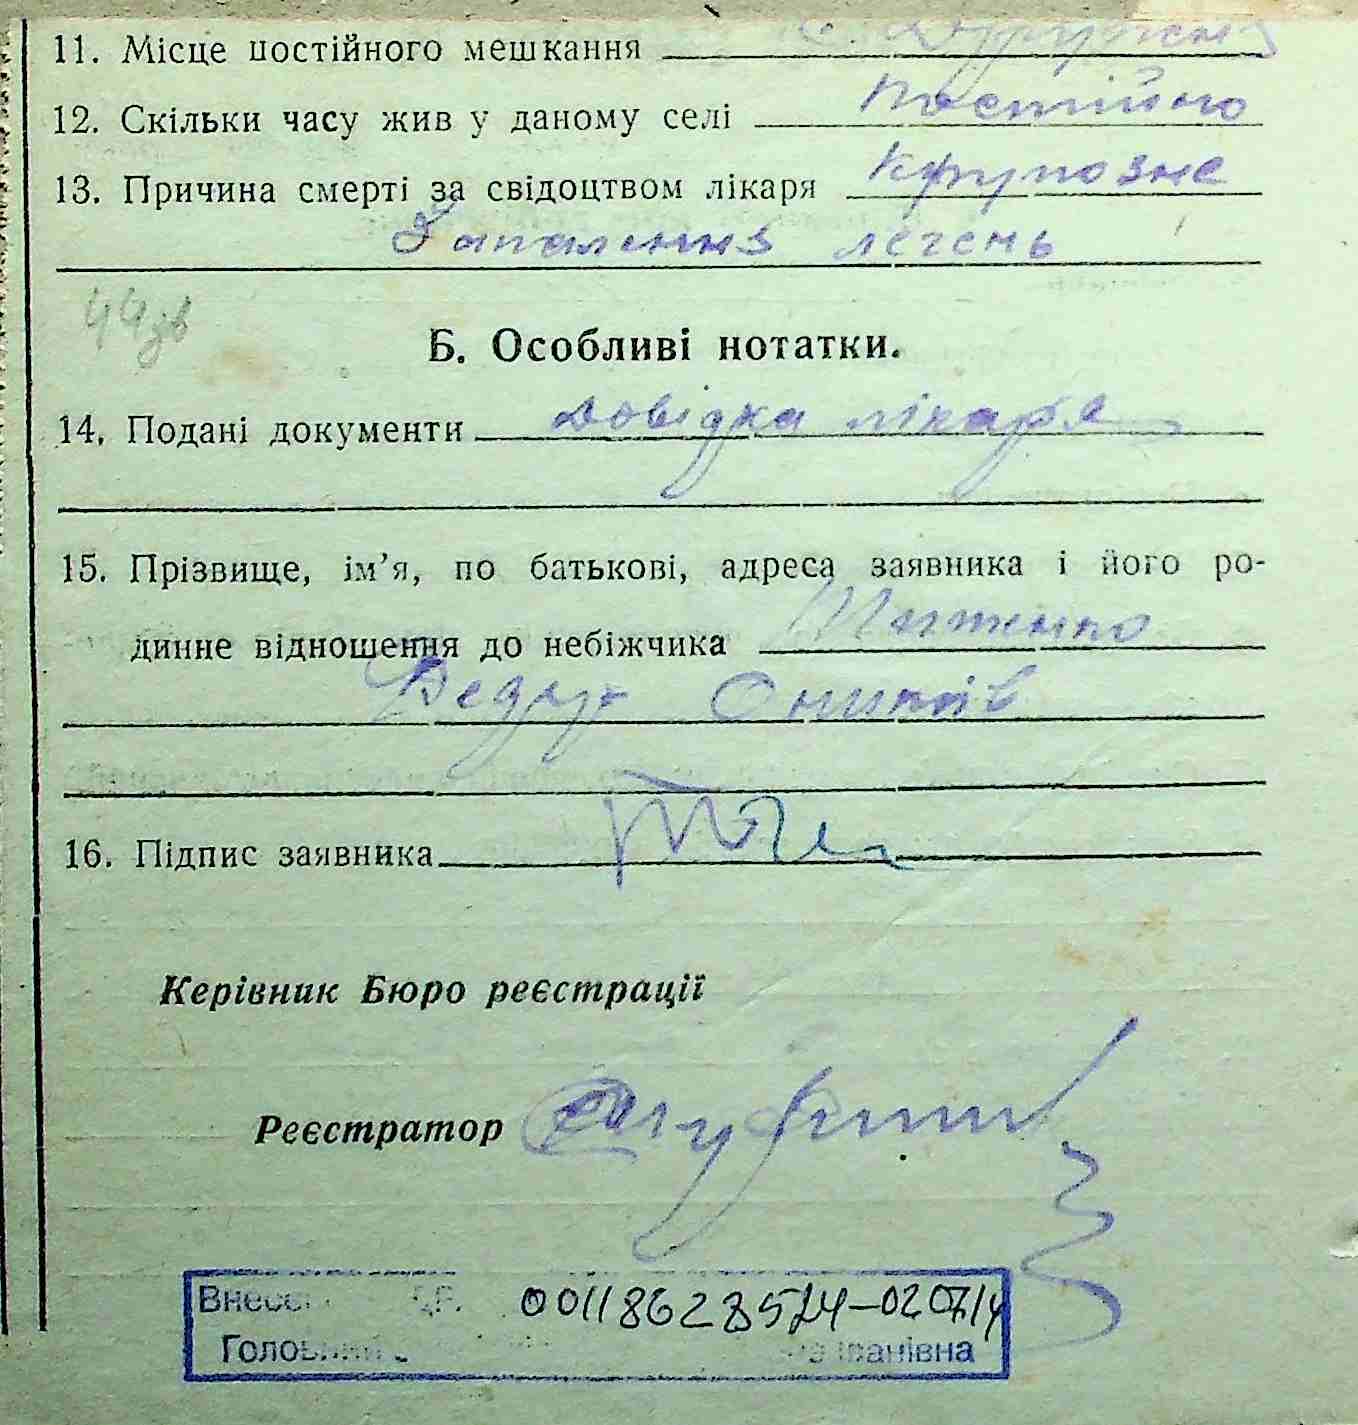 11. Місце постійного мешкання с.
12. Скільки часу жив у даному селі постійно
13. Причина смерті за свідоцтвом лікаря крупозне
Запалення легень
44зв
Б. Особливі нотатки.
14. Подані документи довідка лікаря
15. Прізвище, ім’я, по батькові, адреса заявника і його ро-
динне відношення до небіжчика
Федір
16. Підпис заявника
Керівник Бюро реєстрації
Реєстратор
00118628524-020714
Івanівна